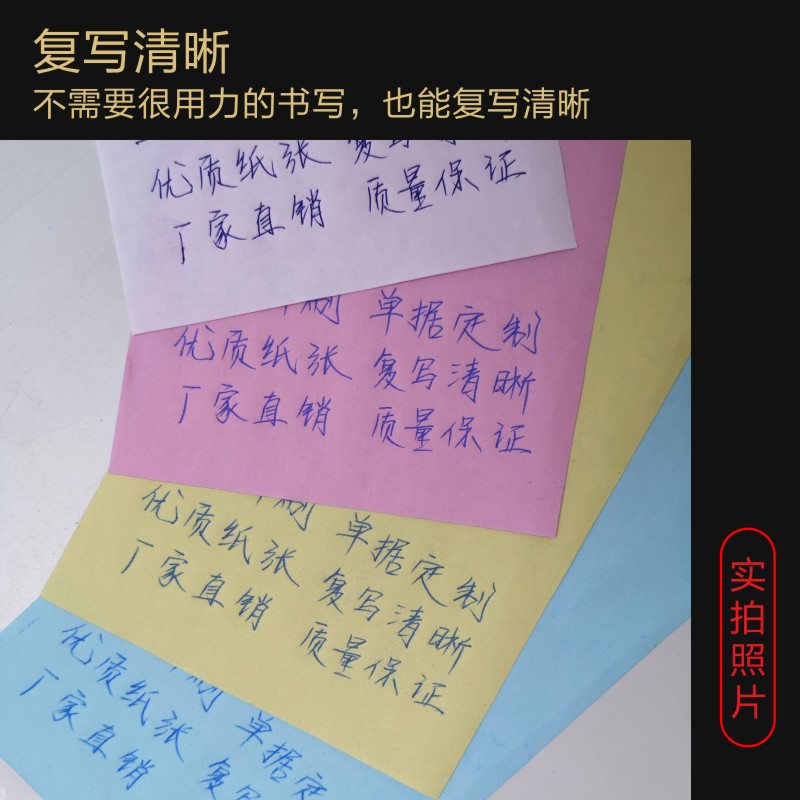 复写清晰
不需要很用力的书写，也能复写清晰
优质纸张 复写
厂家直销 质量保证
制 单据定制
优质纸张 复写清晰
厂家直销 质量保证
制 单据定制
优质纸张 复写清晰
厂家直销 质量保证
单据定
优质纸张 复写
厂家直销
实拍照片